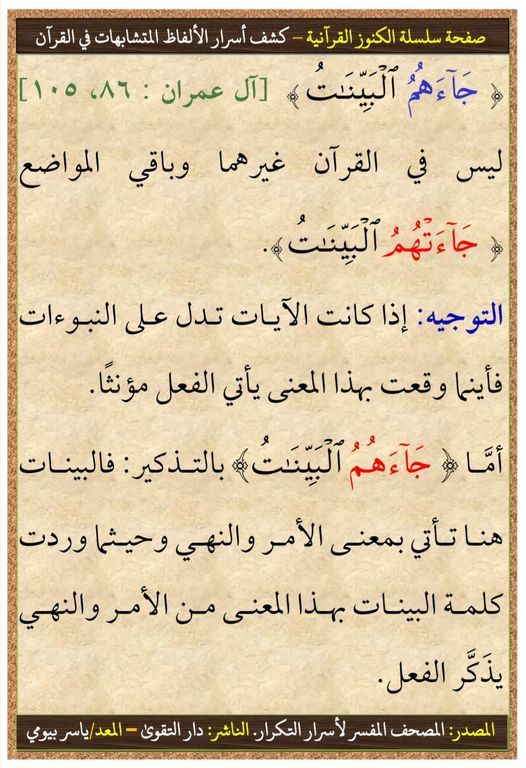 صفحة سلسلة الكنوز القرآنية – كشف أسرار الألفاظ المتشابهات في القرآن
﴿ جَآءَهُمُ ٱلْبَيِّنَـٰتُ ﴾ [آل عمران : ٨٦، ١٠٥]
ليس في القرآن غيرهما وباقي المواضع
﴿ جَآءَتْهُمُ ٱلْبَيِّنَـٰتُ ﴾.
التوجيه: إذا كانت الآيات تدل على النبوءات
فأينما وقعت بهذا المعنى يأتي الفعل مؤنثًا.
أمَّا ﴿ جَآءَهُمُ ٱلْبَيِّنَـٰتُ ﴾ بالتذكير: فالبينات
هنا تأتي بمعنى الأمر والنهي وحيثما وردت
كلمة البينات بهذا المعنى من الأمر والنهي
يذَكَّر الفعل.
المصدر: المصحف المفسر لأسرار التكرار. الناشر: دار التقوىٰ – المعد/ياسر بيومي